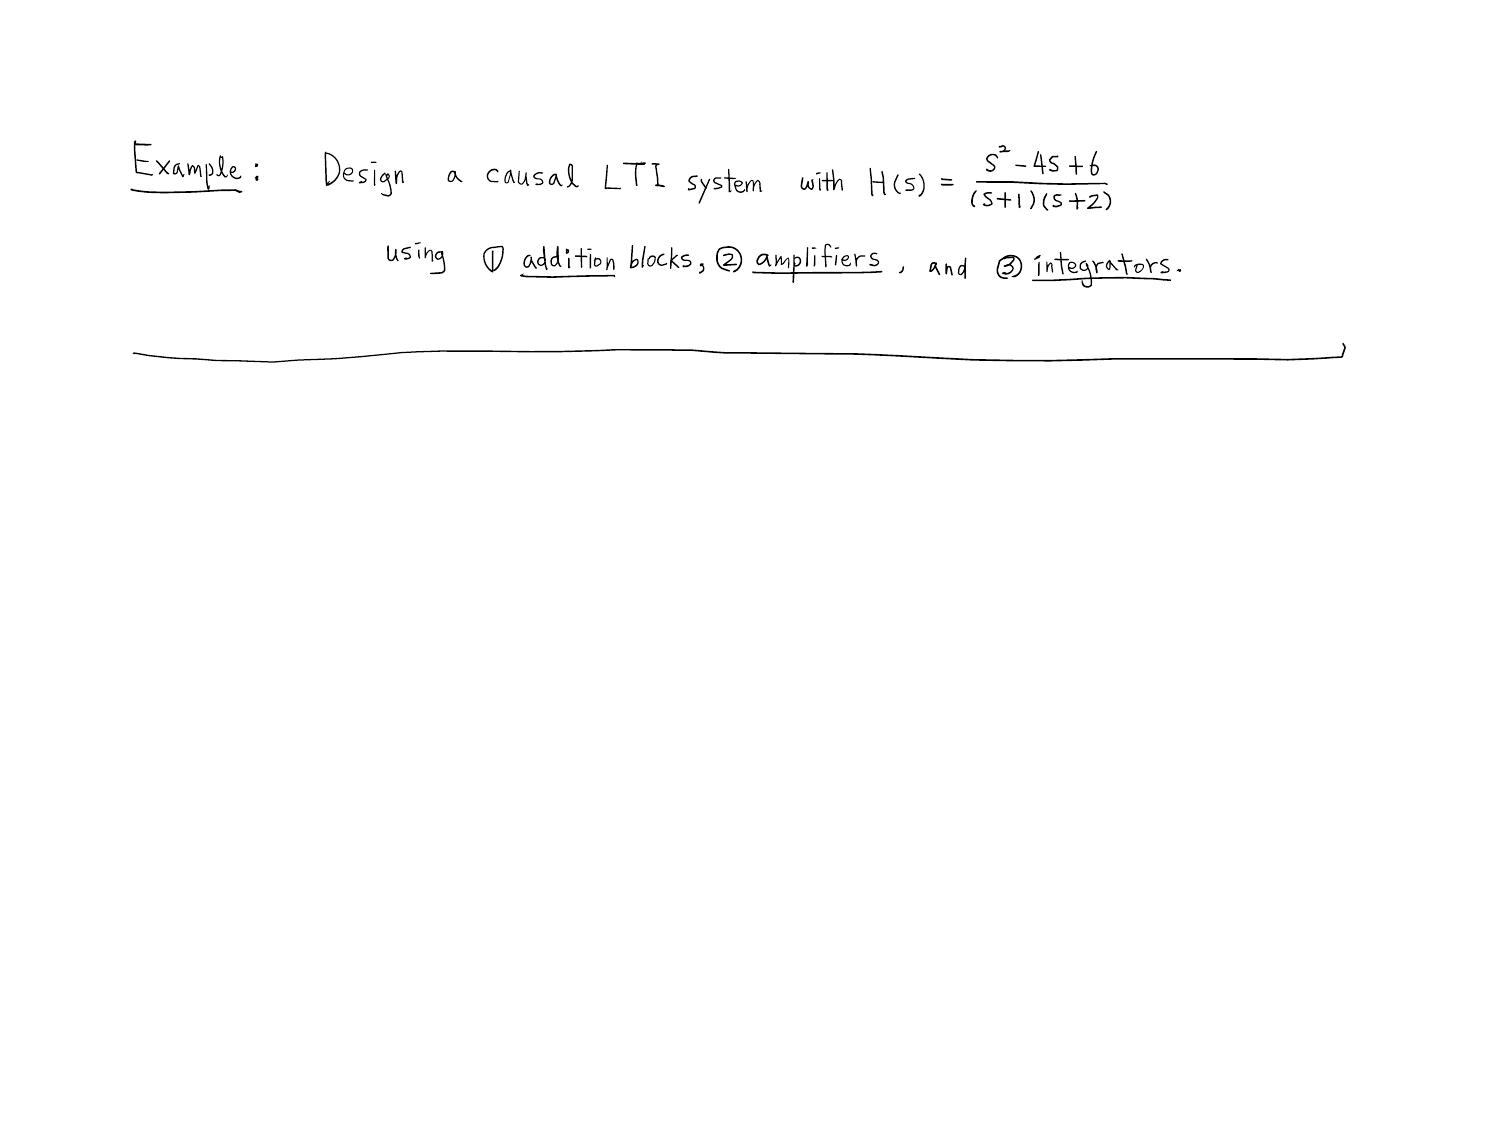 Example: Design a causal LTI system with H(s) = \frac{s^2 - 4s + 6}{(s+1)(s+2)}
using ① addition blocks, ② amplifiers, and ③ integrators.